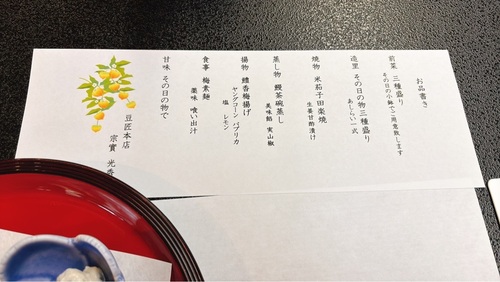 お品書き
前菜 三種盛り
その日の小鉢でご用意致します
造里 その日の物三種盛り
あしらい一式
焼物 米茄子田楽焼
生姜甘酢漬け
蒸し物 鰻茶碗蒸し
美味餡 実山椒
揚物 鱧香梅揚げ
ヤングコーン パプリカ
塩 レモン
食事 梅素麺
薬味 喰い出汁
甘味 その日の物で
豆匠本店
宗實 光